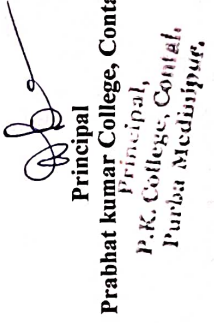 Principal
Prabhat kumar College, Conta
Principal,
P.K. College, Contai.
Purba Medinipur.